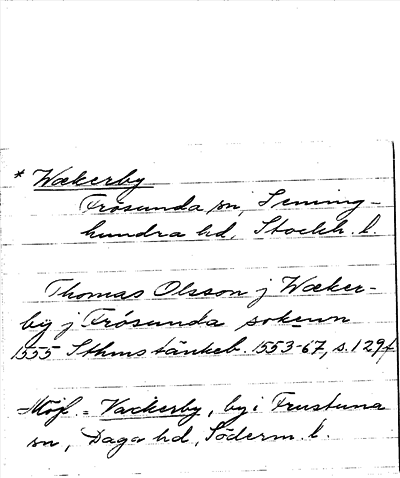 * Wækerby
Frösunda sn, Seming-
hundra hd, Stockh. l.
Thomas Olsson j Wæker-
by j Frósunda sokenn
1555 Sthms tänkeb. 1553-67, s. 129f
Möjl. = Vackerby, by i Frustuna
sn, Daga hd, Söderm. l.